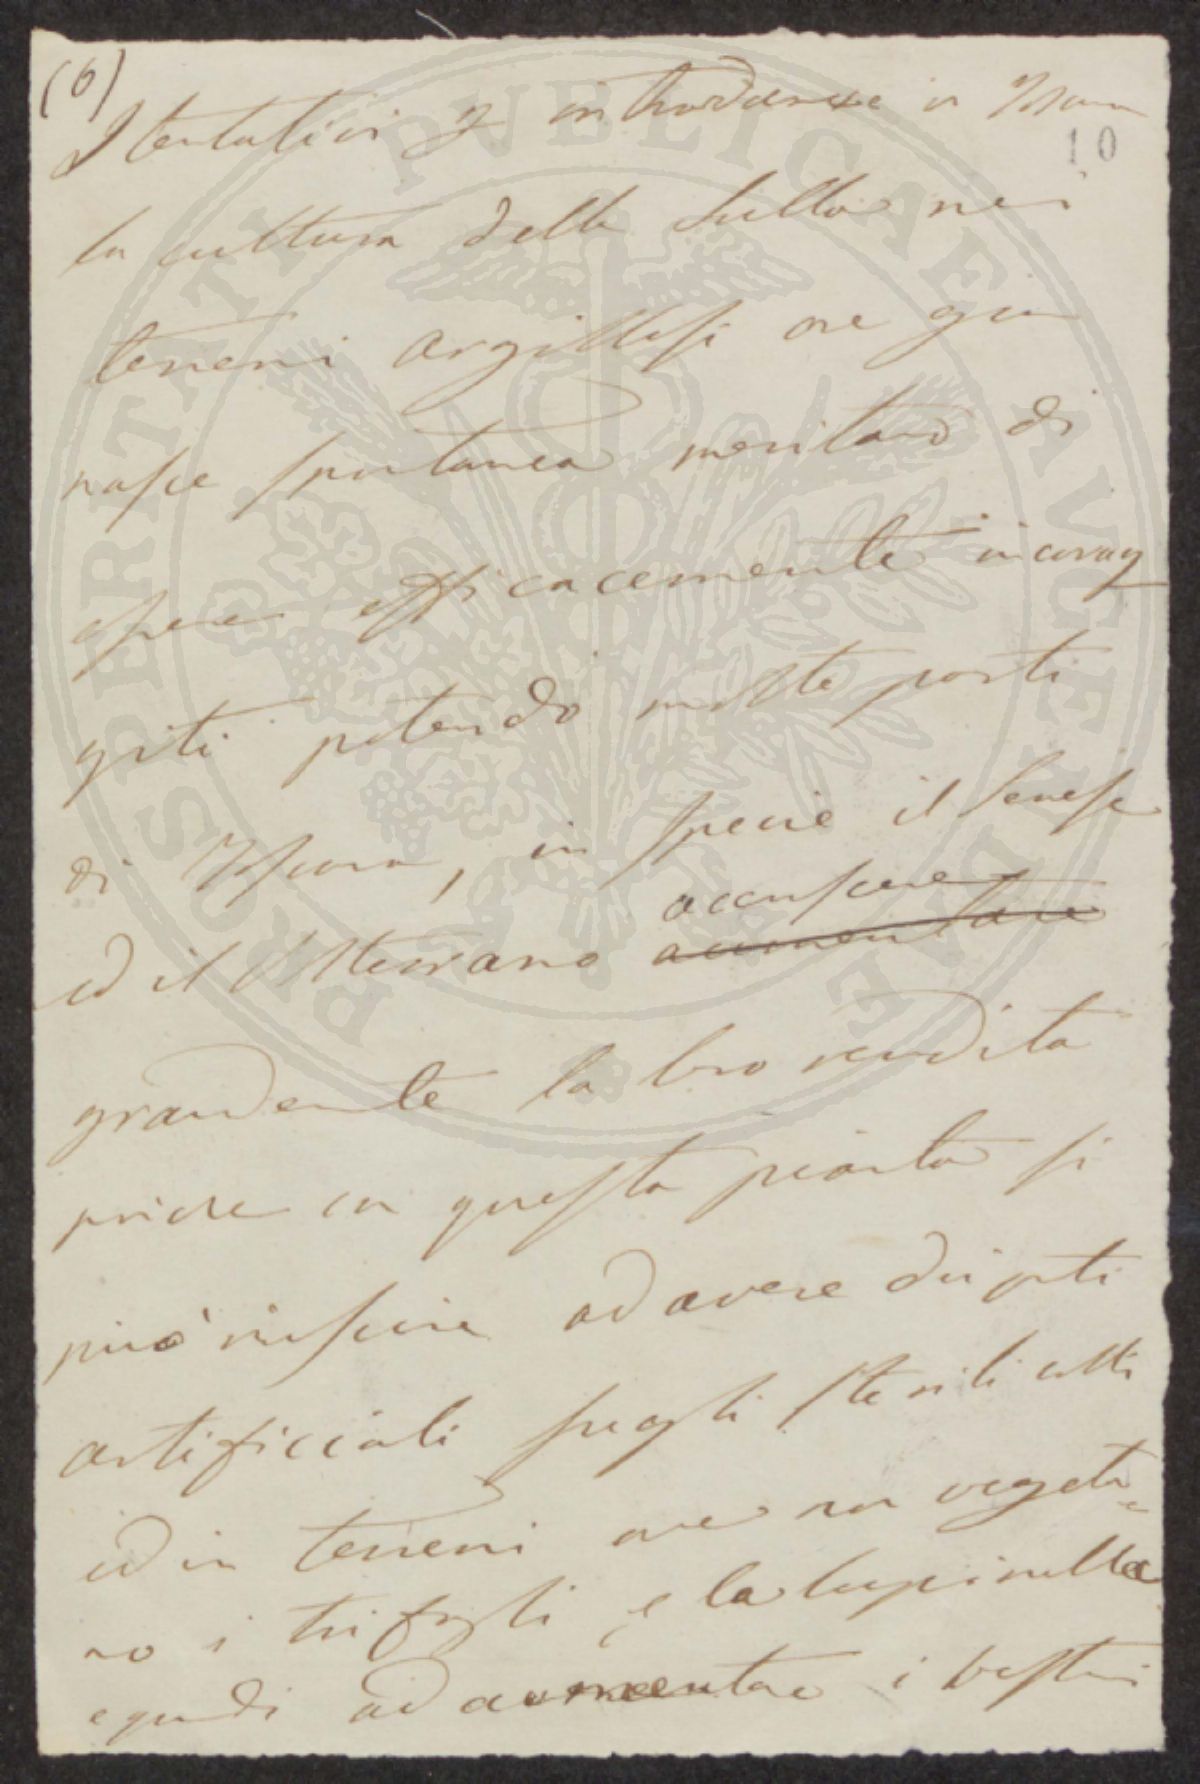 (6)
I tentativi p introdurre in Toscana
10
la cultura della Sulla nei
terreni argillosi ove gia
nasce spontanea meritano di
essere efficacemente incorag
giti potendo molte parti
di Toscana, in specie il Senese
accrescere
ed il Volterrano aumentare
grandemente la loro rendita
poiche con questa pianta si
può riuscire ad avere dei prti
artificiali sugli sterili colli
ed in terreni ove non vegeta=
no i trifogli, e la lupinella
e quindi ad aumentare i besti
PROSPERITATI PVBLICAE AVGENDAE